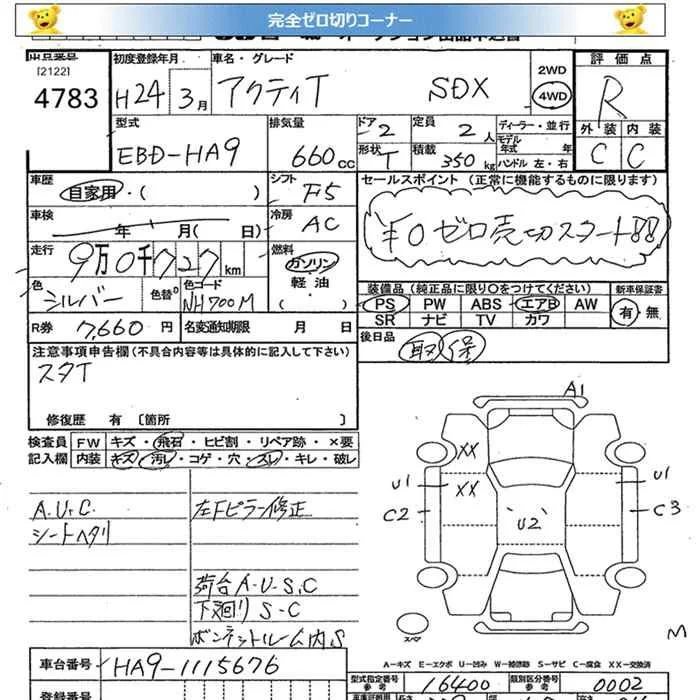 完全ゼロ切りコーナー
出品番号 [2122] 4783
初度登録年月 H24年 3月
車名・グレード アクティT SDX
2WD 4WD
評価点 R
外装 内装
C C
型式 EBD-HA9
排気量 660cc
ドア 2 定員 2人
ディーラー・並行
モデル年式 年
形状 T 積載 350kg ハンドル 左・右
車歴 自家用・( )
シフト F5
セールスポイント (正常に機能するものに限ります)
¥0 ゼロ売切スタート!!
車検 年 月( 日)
冷房 AC
走行 9万0千727km
燃料 ガソリン 軽油 ( )
色 シルバー 色替 色コード NH700M
装備品 (純正品に限り○をつけてください)
新車保証書 有・無
PS PW ABS エアB AW
SR ナビ TV カワ
R券 7,660円
名変通知期限 月 日
後日品 取 保
注意事項申告欄(不具合内容等は具体的に記入して下さい)
スタT
修復歴 有 [箇所 ]
検査員 FW キズ・飛石・ヒビ割・リペア跡・×要
記入欄 内装 キズ・汚レ・コゲ・穴・スレ・キレ・破レ
A.U.C.
シートヘタリ
左Fピラー修正
荷台A・U・S.C
下廻りS-C
ボンネットルーム内S
A1
XX
XX
U1
C2
U2
U1
C3
スペア
M
A-キズ E-エクボ U-凹み W-補修跡 S-サビ C-腐食 XX-交換済
車台番号 HA9-1115676
型式指定番号 参考 16400
類別区分番号 参考 0002
登録番号